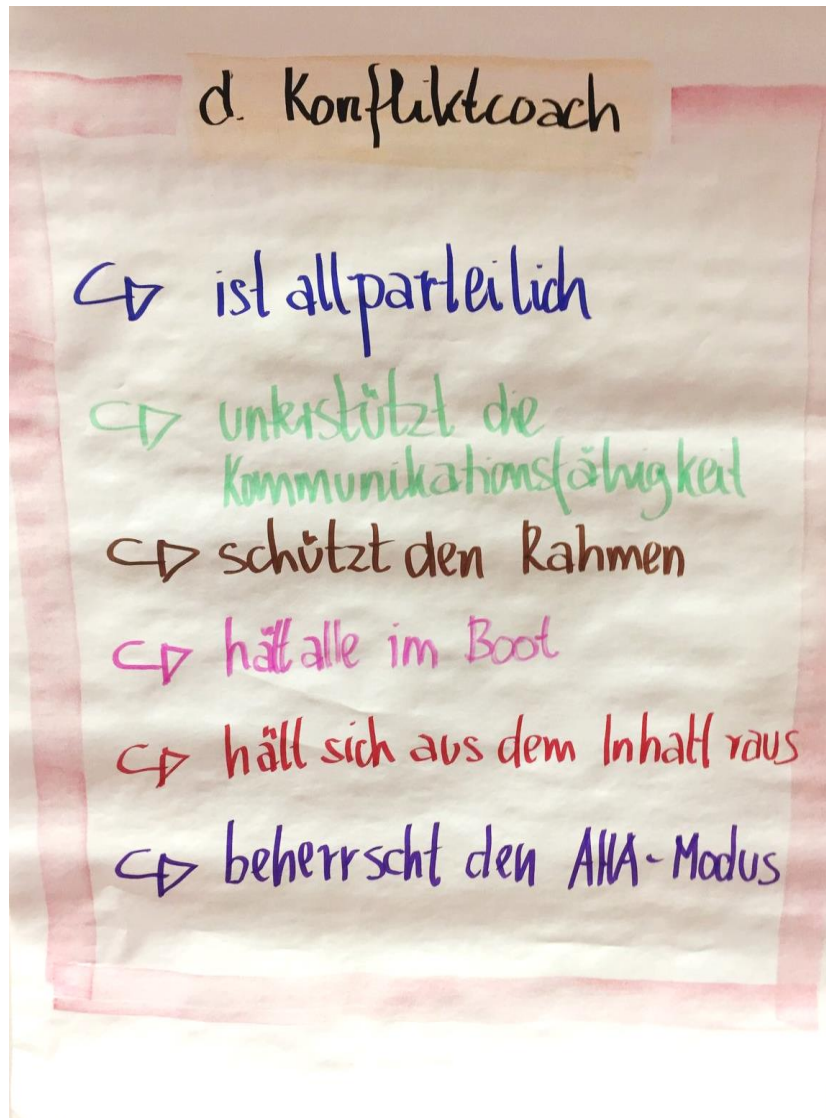 d. Konfliktcoach
ist allparteilich
unterstützt die
Kommunikationsfähigkeit
schützt den Rahmen
hält alle im Boot
hält sich aus dem Inhalt raus
beherrscht den AHA-Modus